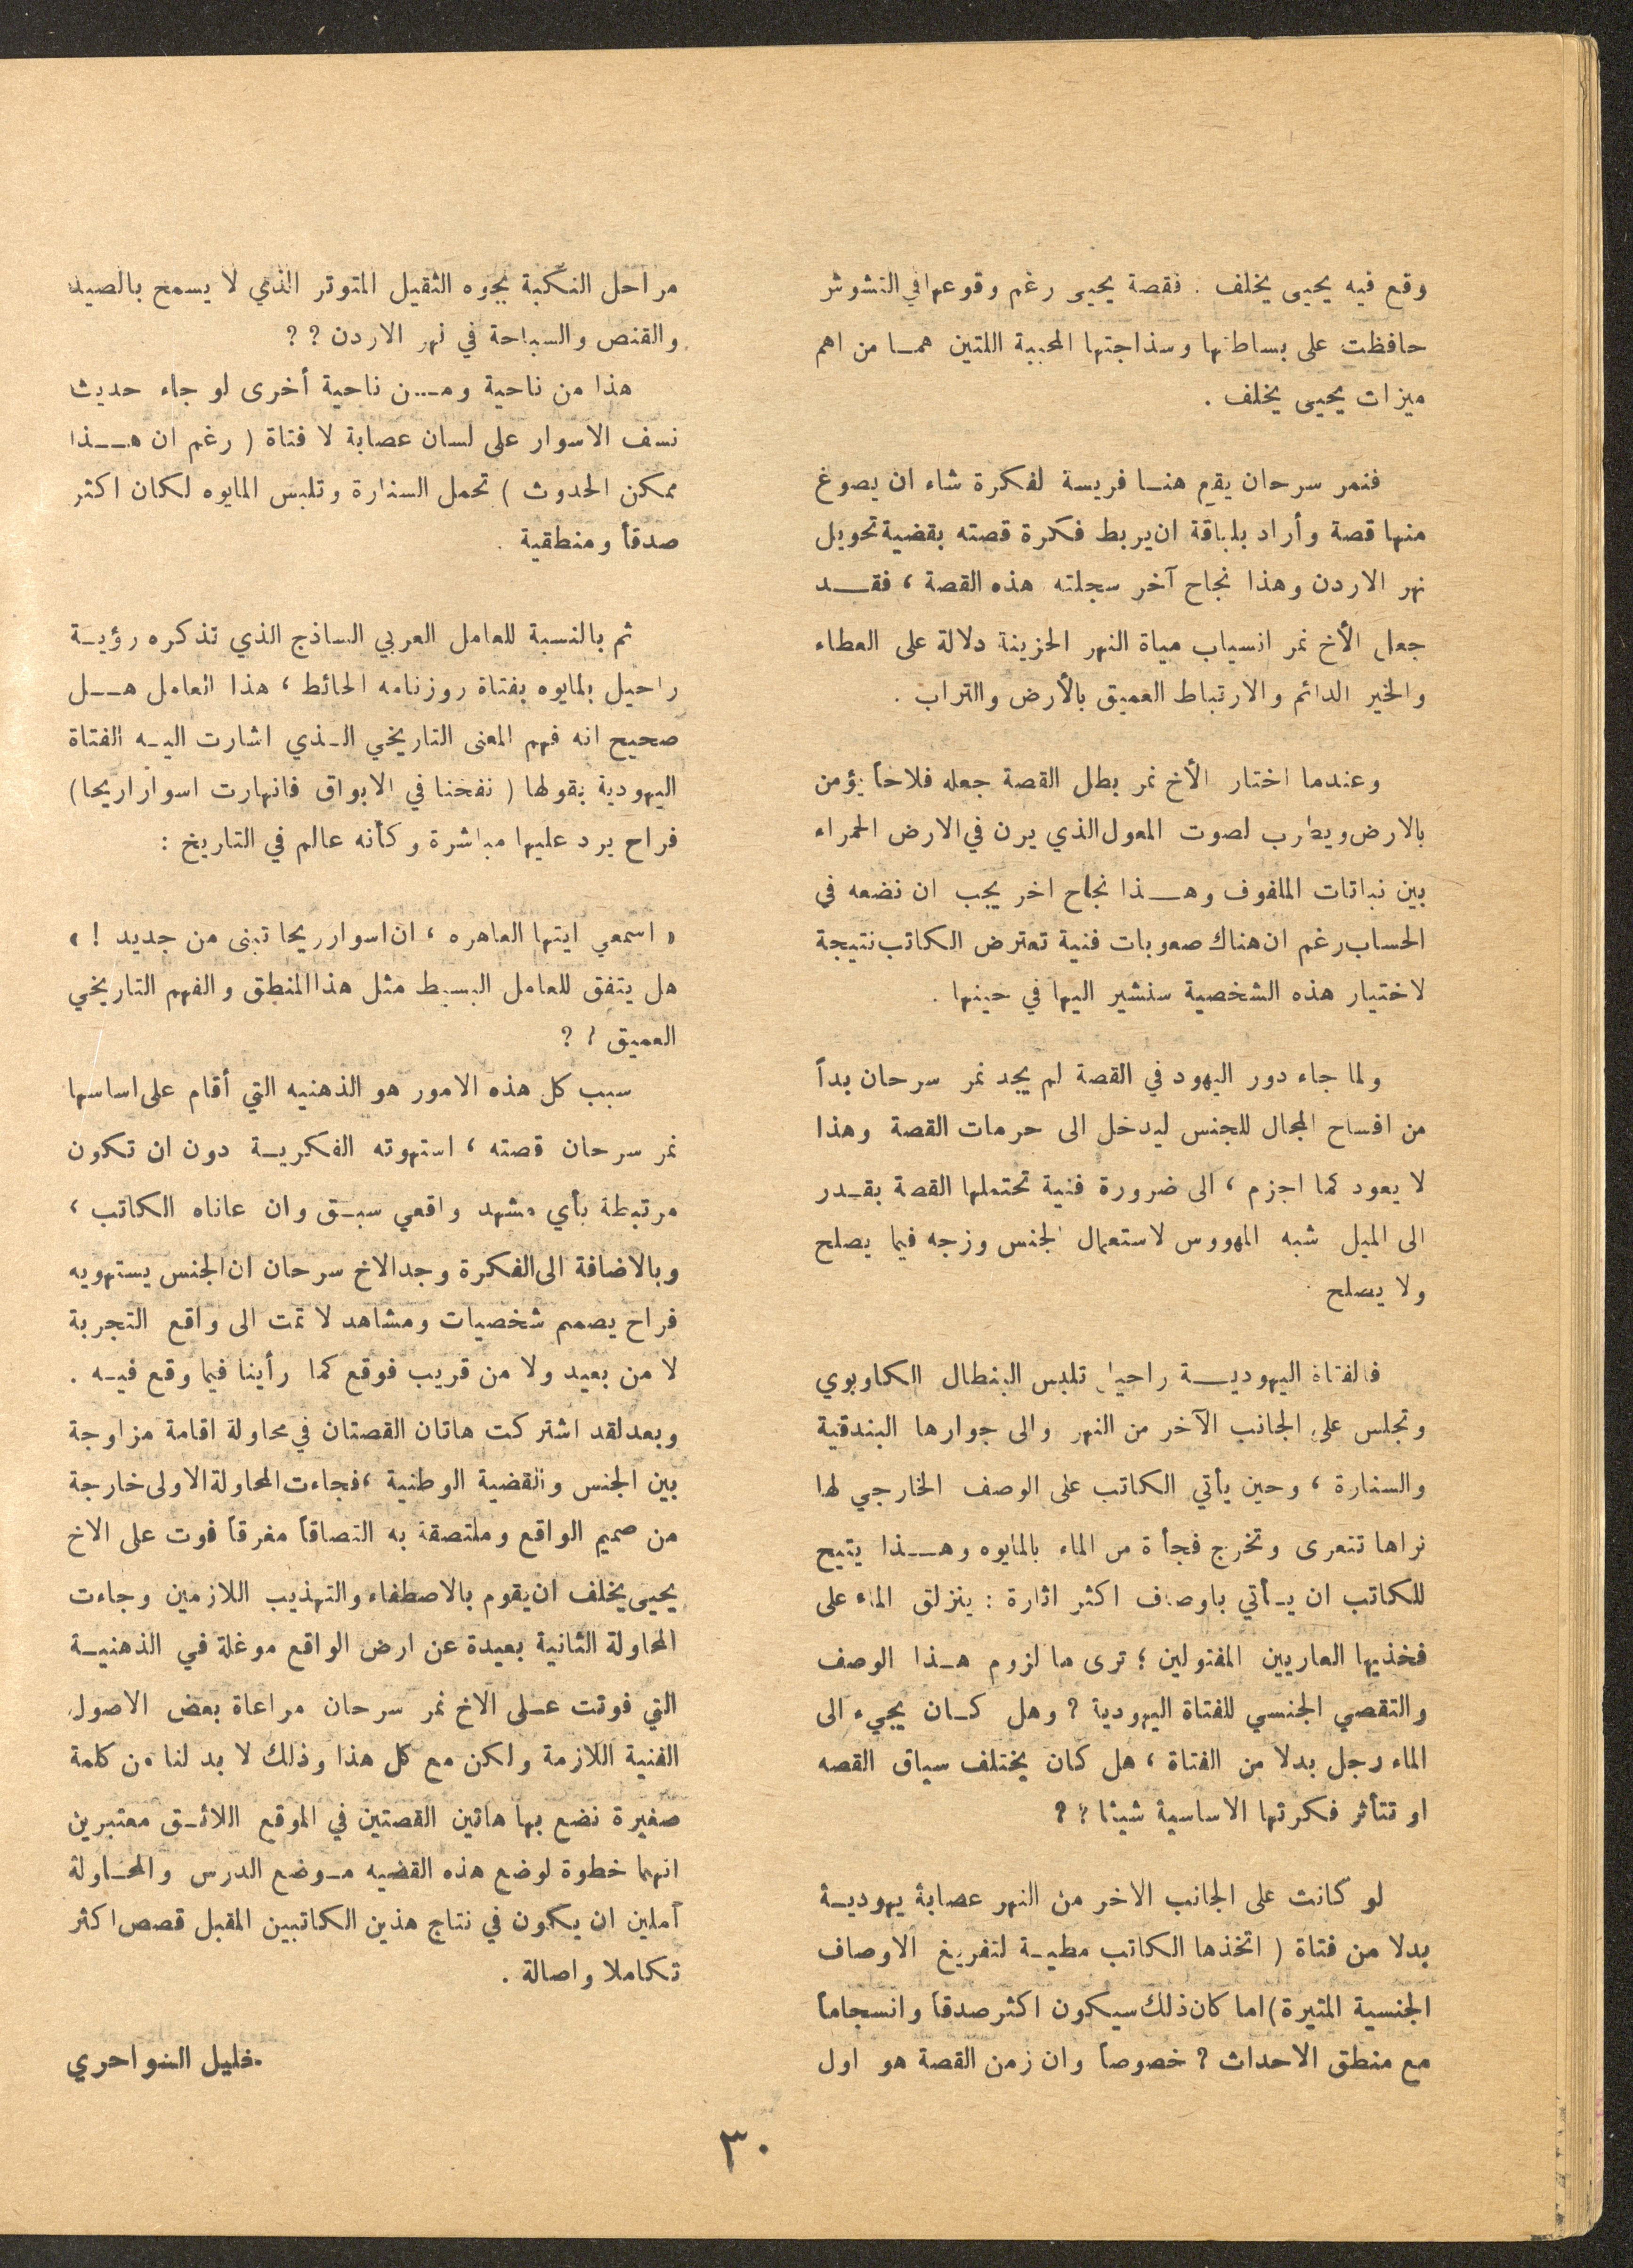 وقع فيه يحيى يخلف . فقصة يحيى رغم وقوعها في التشوش
حافظت على بساطتها وسذاجتها المحببة اللتين همـا من اهم
ميزات يحيى يخلف .
فنمر سرحان يقع هنـا فريسة لفكرة شاء ان يصوغ
منها قصة وأراد بلباقة ان يربط فكرة قصته بقضية تحويل
نهر الاردن وهذا نجاح آخر سجلته هذه القصة ، فقـــد
جعل الأخ نمر انسياب مياة النهر الحزينة دلالة على العطاء
والخير الدائم والارتباط العميق بالأرض والتراب .
وعندما اختار الأخ نمر بطل القصة جعله فلاحاً يؤمن
بالارض ويطرب لصوت المعول الذي يرن في الارض الحمراء
بين نباتات الملفوف وهــذا نجاح اخر يجب ان نضعه في
الحساب رغم ان هناك صعوبات فنية تعترض الكاتب نتيجة
لاختيار هذه الشخصية سنشير اليها في حينها .
ولما جاء دور اليهود في القصة لم يجد نمر سرحان بداً
من افساح المجال للجنس ليدخل الى حرمات القصة وهذا
لا يعود كما اجزم ، الى ضرورة فنية تحتملها القصة بقـدر
الى الميل شبه المهووس لاستعمال الجنس وزجه فيما يصلح
ولا يصلح .
فالفتاة اليهوديـــة راحيل تلبس البنطال الكاوبوي
وتجلس على الجانب الآخر من النهر والى جوارها البندقية
والسنارة ، وحين يأتي الكاتب على الوصف الخارجي لها
نراها تتعرى وتخرج فجأة من الماء بالمايوه وهــذا يتيح
للكاتب ان يـأتي باوصاف اكثر اثارة : ينزلق الماء على
فخذيها العاريين المفتولين ؛ ترى ما لزوم هـذا الوصف
والتقصي الجنسي للفتاة اليهودية ؟ وهل كـان يجيء الى
الماء رجل بدلا من الفتاة ، هل كان يختلف سياق القصه
او تتأثر فكرتها الاساسية شيئا ؟ ؟
لو كانت على الجانب الاخر من النهر عصابة يهوديـة
بدلا من فتاة ( اتخذها الكاتب مطيـة لتفريغ الاوصاف
الجنسية المثيرة ) اما كان ذلك سيكون اكثر صدقاً وانسجاماً
مع منطق الاحداث ؟ خصوصاً وان زمن القصة هو اول
مراحل النكبة بجوه الثقيل المتوتر الذي لا يسمح بالصيد
والقنص والسباحة في نهر الاردن ؟ ؟
هذا من ناحية ومــن ناحية أخرى لو جاء حديث
نسف الاسوار على لسان عصابة لا فتاة ( رغم ان هــذا
ممكن الحدوث ) تحمل السنارة وتلبس المايوه لكان اكثر
صدقاً ومنطقية .
ثم بالنسبة للعامل العربي الساذج الذي تذكره رؤيـة
راحيل بالمايوه بفتاة روزنامه الحائط ، هذا العامل هــل
صحيح انه فهم المعنى التاريخي الـذي اشارت اليـه الفتاة
اليهودية بقولها ( نفخنا في الابواق فانهارت اسوار اريحا )
فراح يرد عليها مباشرة وكأنه عالم في التاريخ :
« اسمعي ايتها العاهره ، ان اسوار ريحا تبنى من جديد ! »
هل يتفق للعامل البسيط مثل هذا المنطق والفهم التاريخي
العميق ؟ ؟
سبب كل هذه الامور هو الذهنيه التي أقام على اساسها
نمر سرحان قصته ، استهوته الفكريـة دون ان تكون
مرتبطة بأي مشهد واقعي سبـق وان عاناه الكاتب ،
وبالاضافة الى الفكرة وجد الاخ سرحان ان الجنس يستهويه
فراح يصمم شخصيات ومشاهد لا تمت الى واقع التجربة
لا من بعيد ولا من قريب فوقع كما رأينا فيما وقع فيـه .
وبعد لقد اشتركت هاتان القصتان في محاولة اقامة مزاوجة
بين الجنس والقضية الوطنية ، فجاءت المحاولة الاولى خارجة
من صميم الواقع وملتصقة به التصاقاً مغرقاً فوت على الاخ
يحيى يخلف ان يقوم بالاصطفاء والتهذيب اللازمين وجاءت
المحاولة الثانية بعيدة عن ارض الواقع موغلة في الذهنيـة
التي فوتت عـلى الاخ نمر سرحان مراعاة بعض الاصول
الفنية اللازمة ولكن مع كل هذا وذلك لا بد لنا من كلمة
صغيرة نضع بها هاتين القصتين في الموقع اللائـق معتبرين
انهما خطوة لوضع هذه القضيه مـوضع الدرس والمحـاولة
آملين ان يكون في نتاج هذين الكاتبين المقبل قصص اكثر
تكاملا واصالة .
خليل السواحري
٣٠